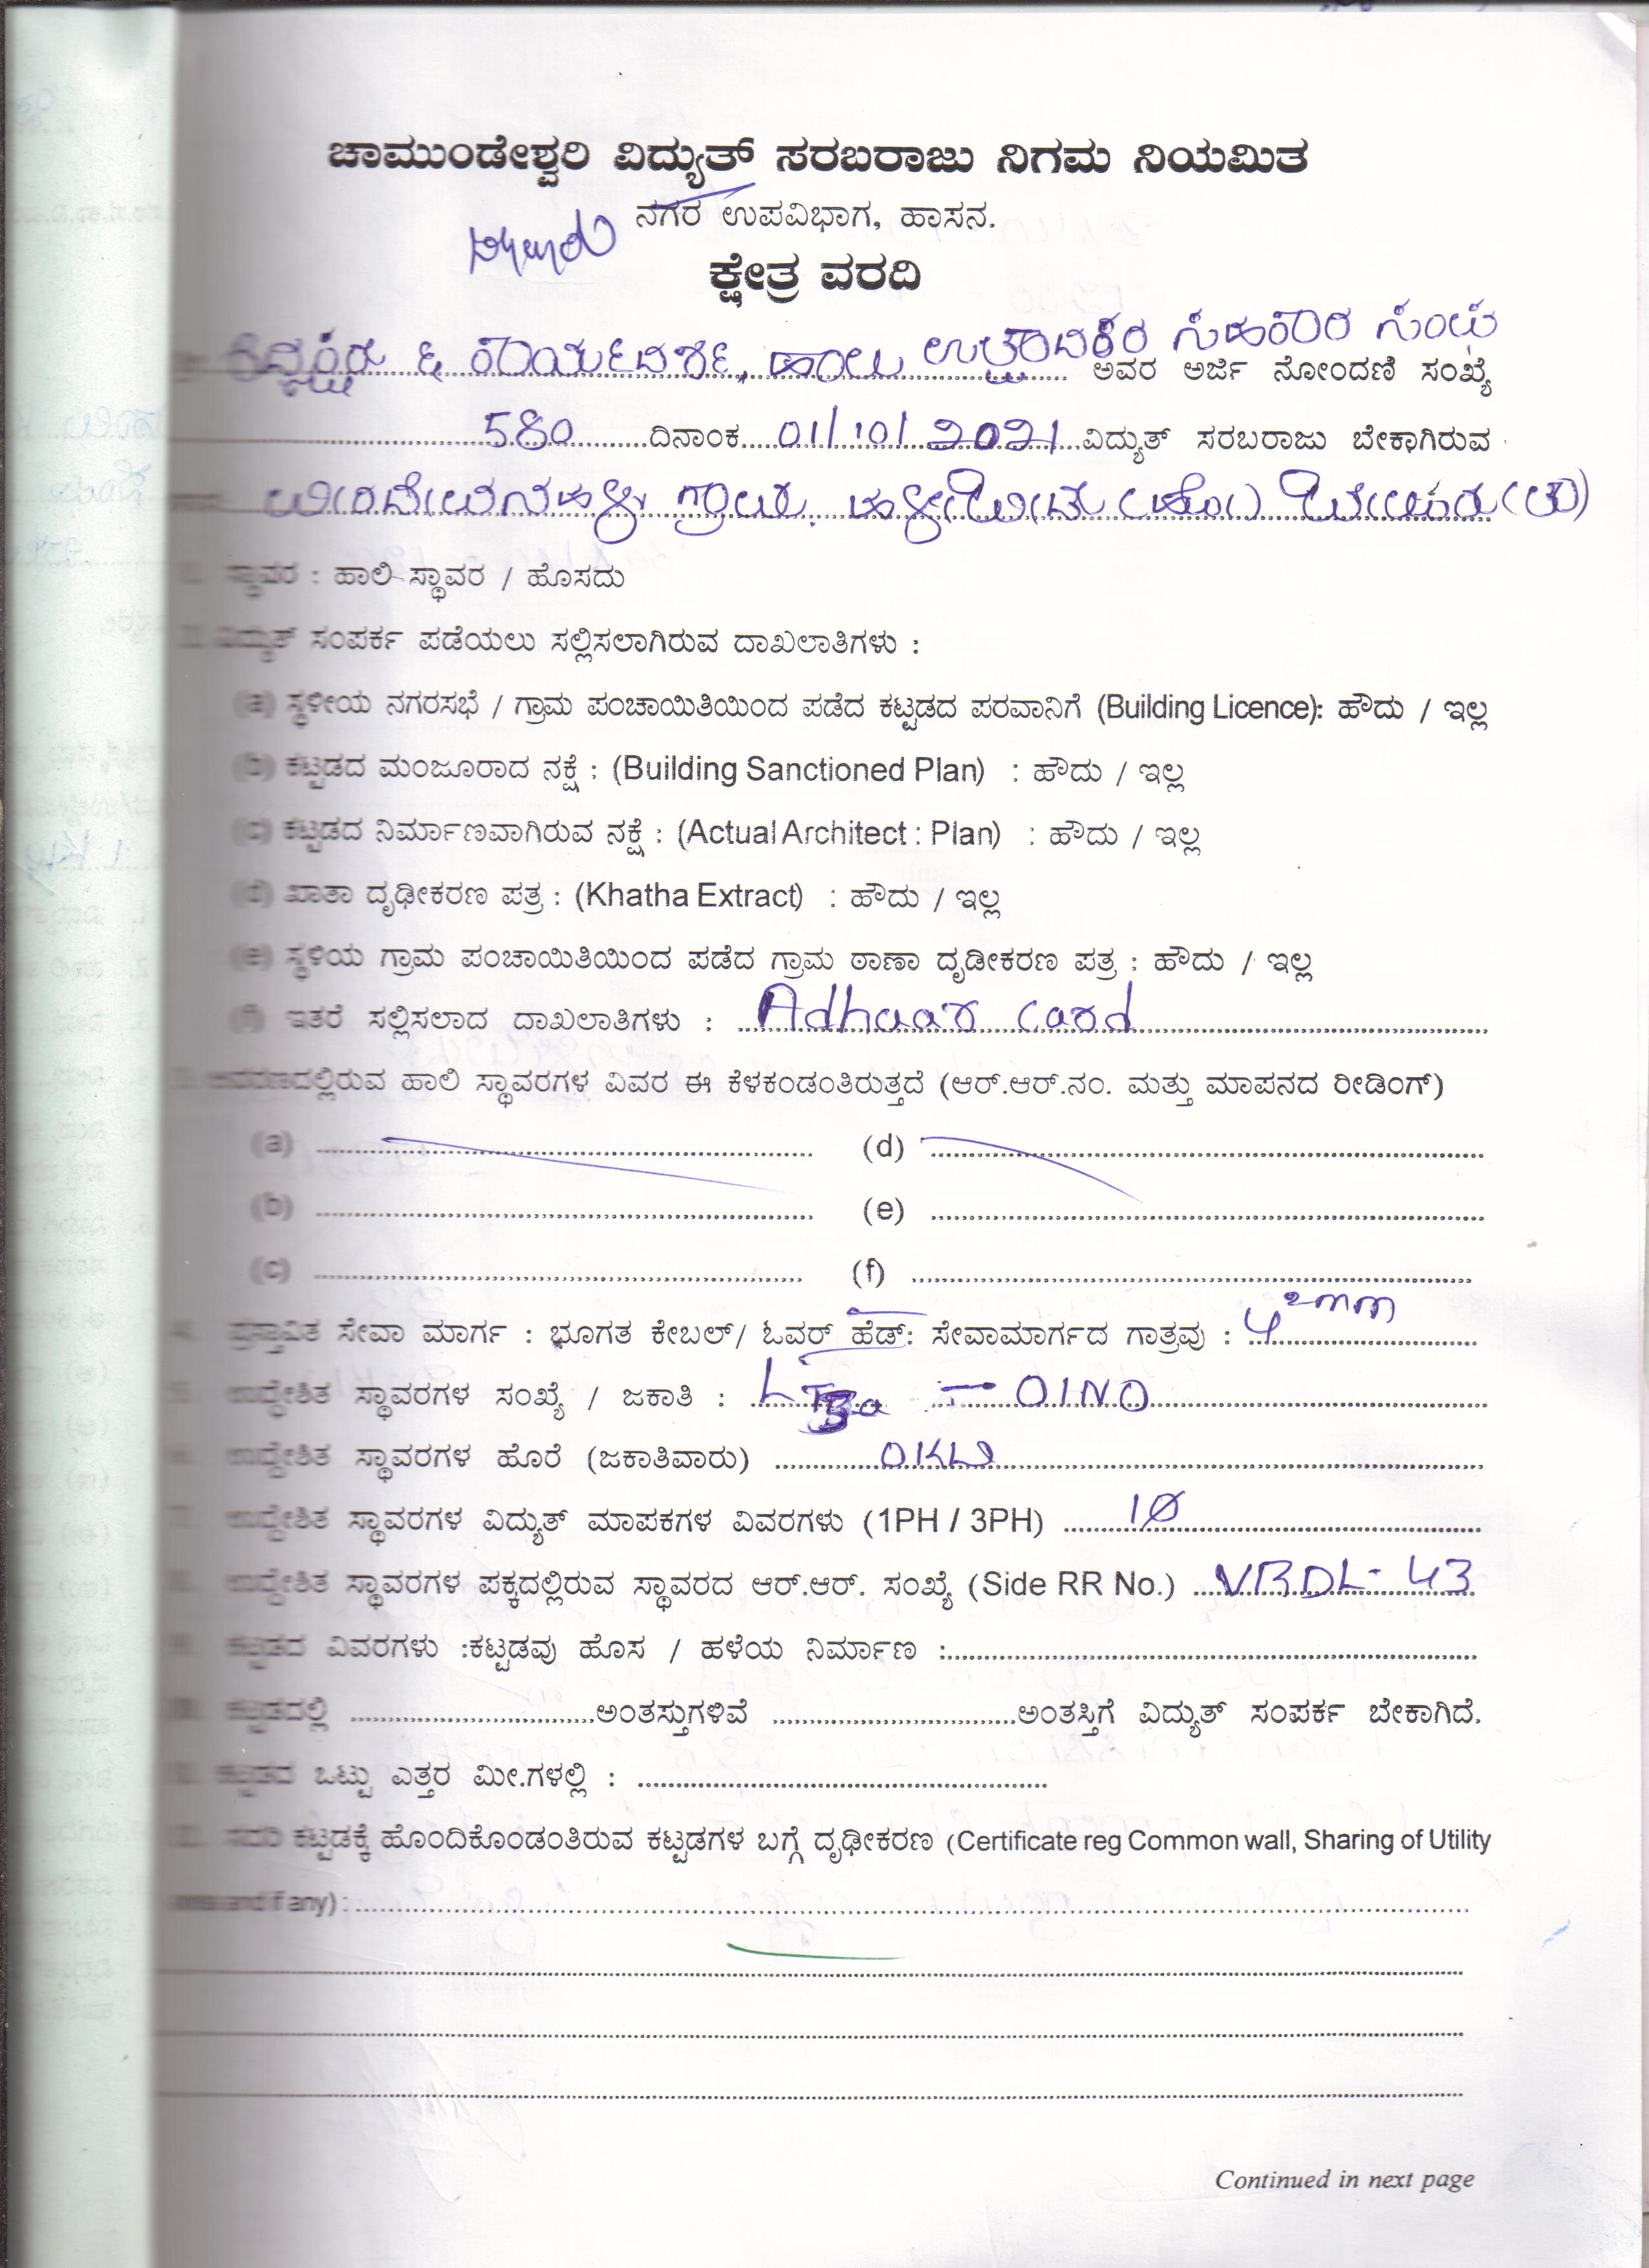 ಚಾಮುಂಡೇಶ್ವರಿ ವಿದ್ಯುತ್ ಸರಬರಾಜು ನಿಗಮ ನಿಯಮಿತ
ನಗರ ಉಪವಿಭಾಗ, ಹಾಸನ.
ಕ್ಷೇತ್ರ ವರದಿ
ಕಾರ್ಯದರ್ಶಿ, ಹಾಲು ಉತ್ಪಾದಕರ ಸಹಕಾರ ಸಂಘ
ಅವರ ಅರ್ಜಿ ನೋಂದಣಿ ಸಂಖ್ಯೆ
580 ದಿನಾಂಕ 01/10/2021 ವಿದ್ಯುತ್ ಸರಬರಾಜು ಬೇಕಾಗಿರುವ
ವೀರದೇವನಹಳ್ಳಿ ಗ್ರಾಮ. ಹಳೇಬೀಡು (ಹೋ) ಬೇಲೂರು (ತಾ)
ಸ್ಥಾವರ : ಹಾಲಿ ಸ್ಥಾವರ / ಹೊಸದು
ವಿದ್ಯುತ್ ಸಂಪರ್ಕ ಪಡೆಯಲು ಸಲ್ಲಿಸಲಾಗಿರುವ ದಾಖಲಾತಿಗಳು :
(a) ಸ್ಥಳೀಯ ನಗರಸಭೆ / ಗ್ರಾಮ ಪಂಚಾಯಿತಿಯಿಂದ ಪಡೆದ ಕಟ್ಟಡದ ಪರವಾನಿಗೆ (Building Licence): ಹೌದು / ಇಲ್ಲ
(b) ಕಟ್ಟಡದ ಮಂಜೂರಾದ ನಕ್ಷೆ : (Building Sanctioned Plan) : ಹೌದು / ಇಲ್ಲ
(c) ಕಟ್ಟಡದ ನಿರ್ಮಾಣವಾಗಿರುವ ನಕ್ಷೆ : (Actual Architect : Plan) : ಹೌದು / ಇಲ್ಲ
(d) ಖಾತಾ ದೃಢೀಕರಣ ಪತ್ರ : (Khatha Extract) : ಹೌದು / ಇಲ್ಲ
(e) ಸ್ಥಳಿಯ ಗ್ರಾಮ ಪಂಚಾಯಿತಿಯಿಂದ ಪಡೆದ ಗ್ರಾಮ ಠಾಣಾ ದೃಡೀಕರಣ ಪತ್ರ : ಹೌದು / ಇಲ್ಲ
(f) ಇತರೆ ಸಲ್ಲಿಸಲಾದ ದಾಖಲಾತಿಗಳು : Adhaar card
ಆವರಣದಲ್ಲಿರುವ ಹಾಲಿ ಸ್ಥಾವರಗಳ ವಿವರ ಈ ಕೆಳಕಂಡಂತಿರುತ್ತದೆ (ಆರ್.ಆರ್.ನಂ. ಮತ್ತು ಮಾಪನದ ರೀಡಿಂಗ್)
(a) (d)
(b) (e)
(c) (f)
ಪ್ರಸ್ತಾವಿತ ಸೇವಾ ಮಾರ್ಗ : ಭೂಗತ ಕೇಬಲ್/ ಓವರ್ ಹೆಡ್: ಸೇವಾಮಾರ್ಗದ ಗಾತ್ರವು : 4²mm
ಉದ್ದೇಶಿತ ಸ್ಥಾವರಗಳ ಸಂಖ್ಯೆ / ಜಕಾತಿ : - 01NO
ಉದ್ದೇಶಿತ ಸ್ಥಾವರಗಳ ಹೊರೆ (ಜಕಾತಿವಾರು)
ಉದ್ದೇಶಿತ ಸ್ಥಾವರಗಳ ವಿದ್ಯುತ್ ಮಾಪಕಗಳ ವಿವರಗಳು (1PH / 3PH) 1Ø
ಉದ್ದೇಶಿತ ಸ್ಥಾವರಗಳ ಪಕ್ಕದಲ್ಲಿರುವ ಸ್ಥಾವರದ ಆರ್.ಆರ್. ಸಂಖ್ಯೆ (Side RR No.) VBDL- 43
ಕಟ್ಟಡದ ವಿವರಗಳು :ಕಟ್ಟಡವು ಹೊಸ / ಹಳೆಯ ನಿರ್ಮಾಣ :
ಕಟ್ಟಡದಲ್ಲಿ ಅಂತಸ್ತುಗಳಿವೆ ಅಂತಸ್ತಿಗೆ ವಿದ್ಯುತ್ ಸಂಪರ್ಕ ಬೇಕಾಗಿದೆ.
ಕಟ್ಟಡದ ಒಟ್ಟು ಎತ್ತರ ಮೀ.ಗಳಲ್ಲಿ :
ಸದರಿ ಕಟ್ಟಡಕ್ಕೆ ಹೊಂದಿಕೊಂಡಂತಿರುವ ಕಟ್ಟಡಗಳ ಬಗ್ಗೆ ದೃಢೀಕರಣ (Certificate reg Common wall, Sharing of Utility
and if any) :
Continued in next page